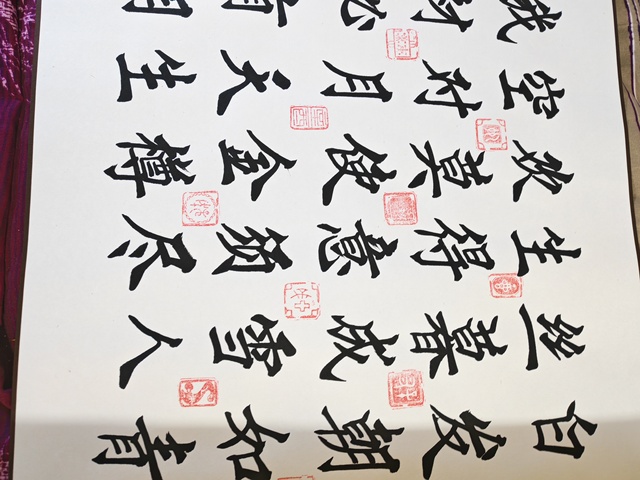 白发朝如青
丝暮成雪人
生得意须尽
欢莫使金樽
空对月天生
我材必有用